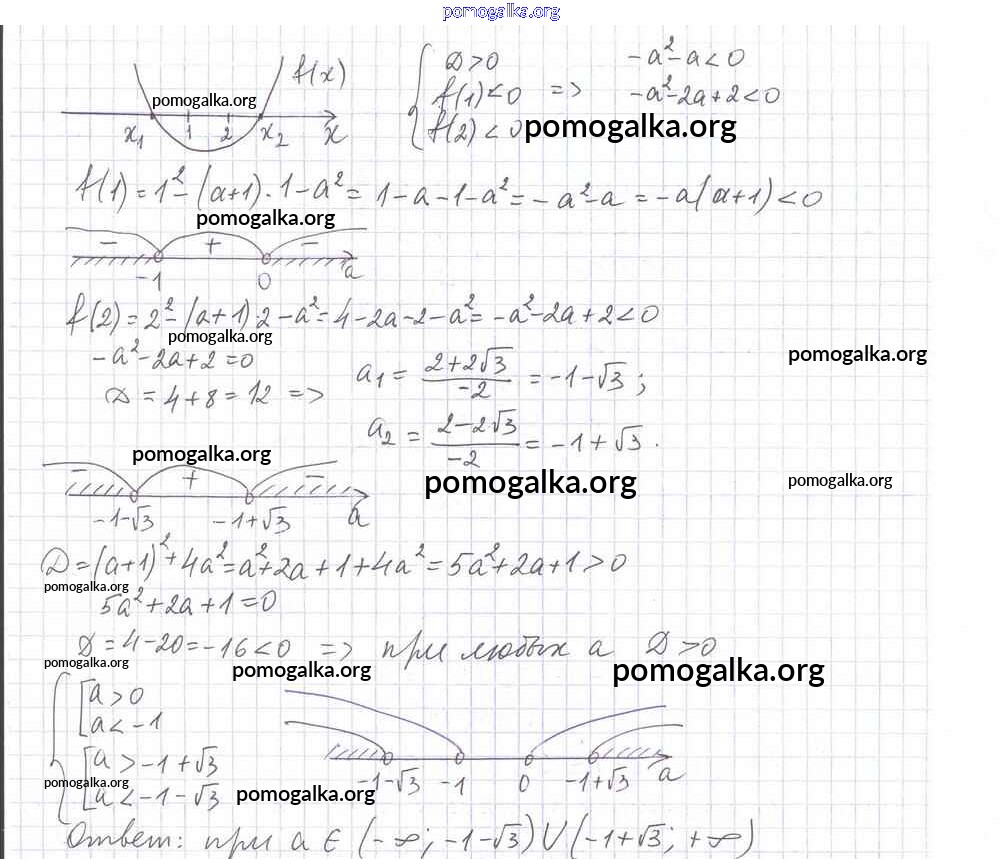 pomogalka.org
f(x)
pomogalka.org
x₁ 1 2 x₂ x
D > 0
f(1) < 0 =>
f(2) < 0
-a² - a < 0
-a² - 2a + 2 < 0
pomogalka.org
f(1) = 1² - (a+1)·1 - a² = 1 - a - 1 - a² = -a² - a = -a(a+1) < 0
pomogalka.org
- + -
-1 0 a
f(2) = 2² - (a+1)·2 - a² = 4 - 2a - 2 - a² = -a² - 2a + 2 < 0
pomogalka.org
-a² - 2a + 2 = 0
pomogalka.org
D = 4 + 8 = 12 => a₁ = (2+2√3)/-2 = -1-√3;
a₂ = (2-2√3)/-2 = -1+√3.
pomogalka.org
pomogalka.org
pomogalka.org
- + -
-1-√3 -1+√3 a
D = (a+1)² + 4a² = a² + 2a + 1 + 4a² = 5a² + 2a + 1 > 0
pomogalka.org
5a² + 2a + 1 = 0
D = 4 - 20 = -16 < 0 => при любых a D > 0
pomogalka.org
pomogalka.org
pomogalka.org
a > 0
a < -1
a > -1+√3
a < -1-√3
-1-√3 -1 0 -1+√3 a
pomogalka.org
pomogalka.org
Ответ: при a ∈ (-∞; -1-√3) ∪ (-1+√3; +∞)